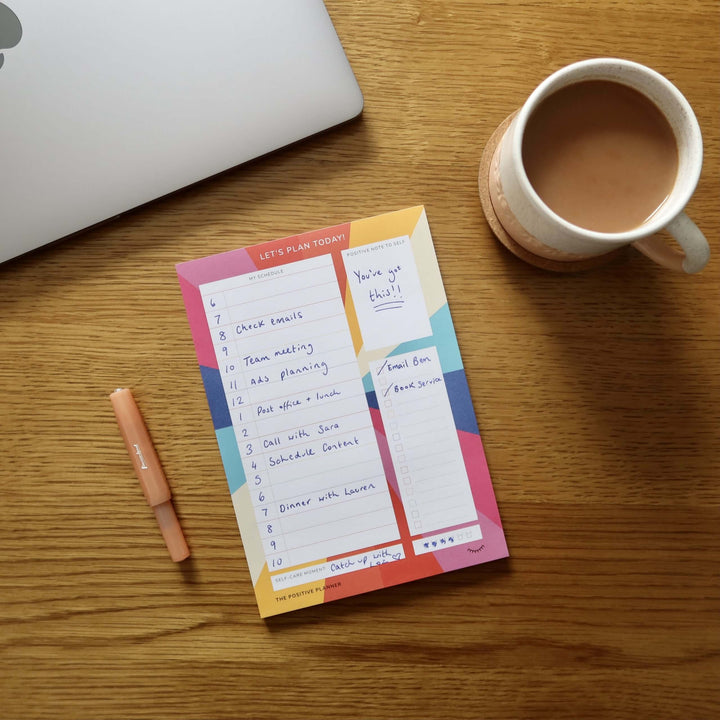 LET'S PLAN TODAY!
MY SCHEDULE
6
7
8 Check emails
9
10 Team meeting
11 Ads planning
12
1 Post office + lunch
2
3 Call with Sara
4 Schedule Content
5
6
7 Dinner with Lauren
8
9
10
POSITIVE NOTE TO SELF
You've got
this!!
Email Ben
Book Service
SELF-CARE MOMENT Catch up with
THE POSITIVE PLANNER